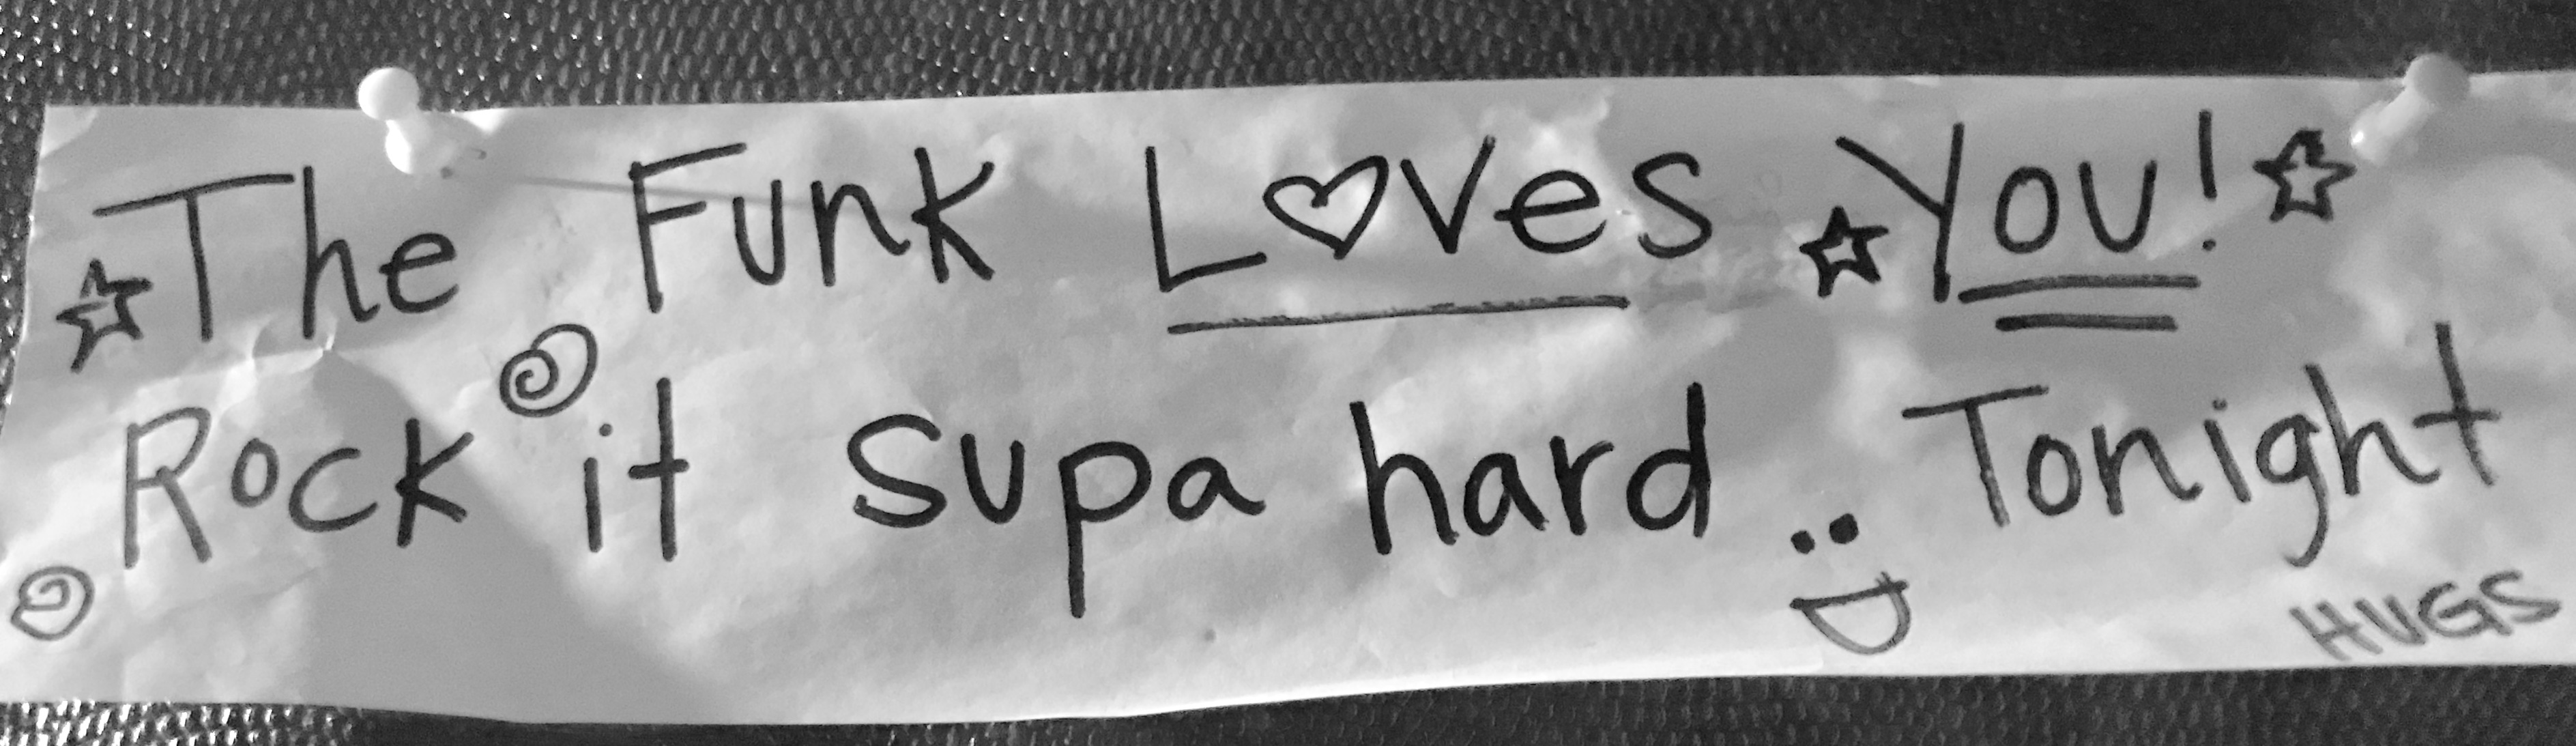 The Funk Loves You!
Rock it supa hard Tonight
HUGS